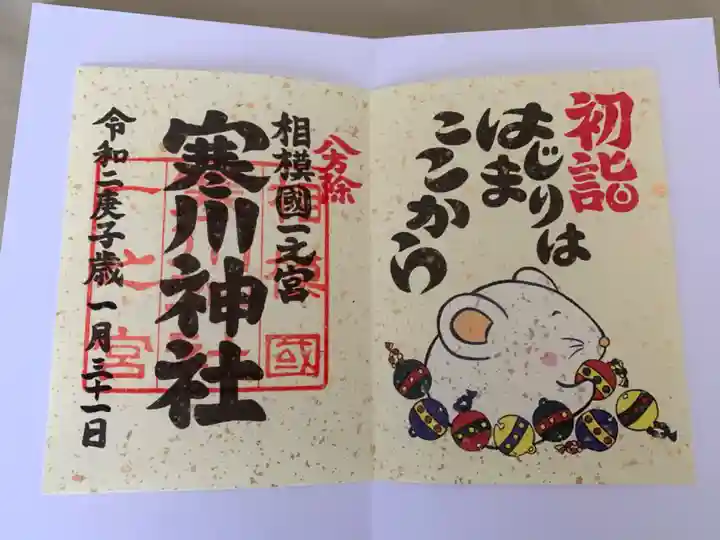 初詣
はじまりは
ここから
八方除
相模國一之宮
寒川神社
令和二庚子歳 一月三十一日
相模國
一之宮